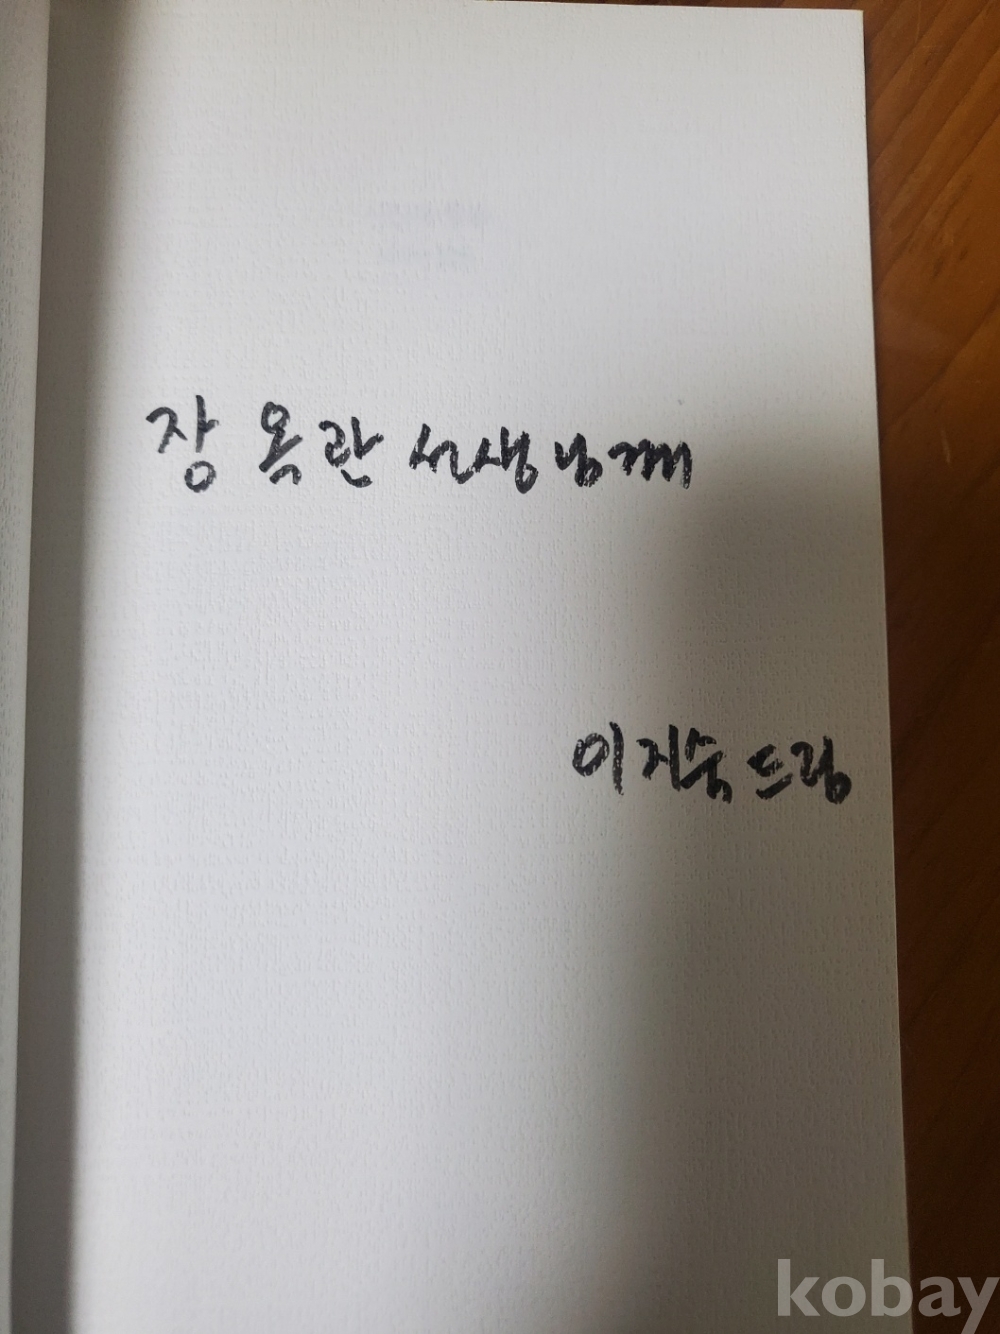 장옥관 선생님께
이지숙 드림
kobay